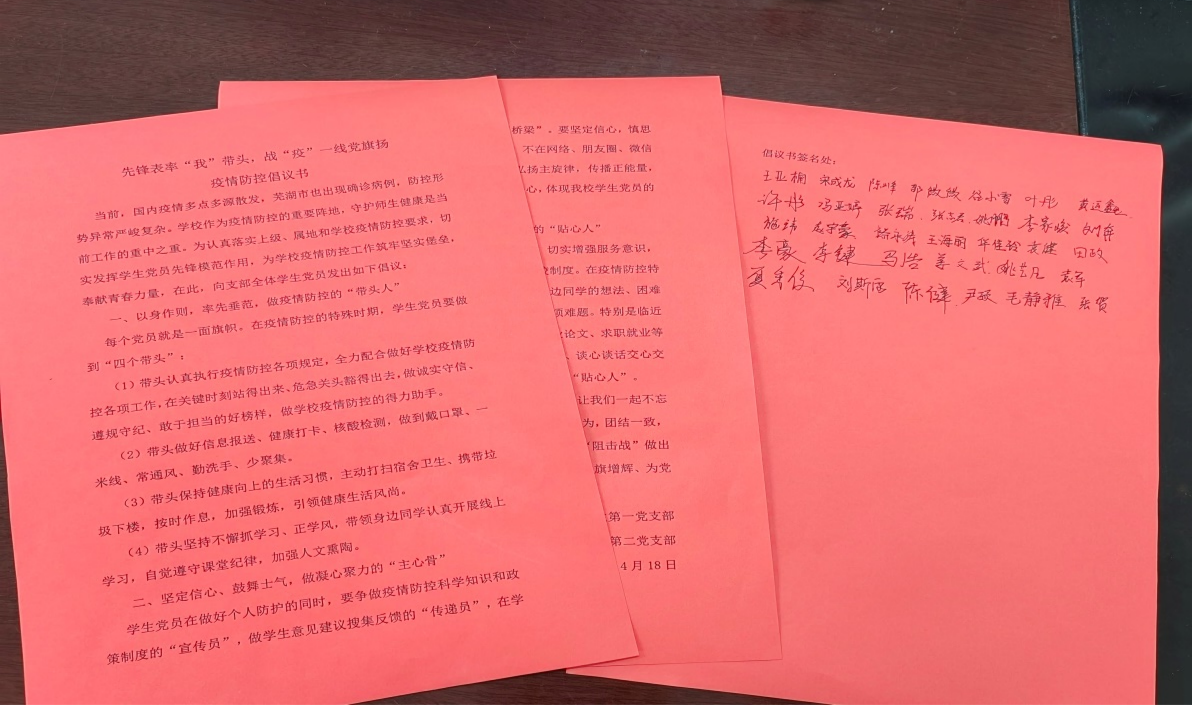 先锋表率“我”带头，战“疫”一线党旗扬
疫情防控倡议书
当前，国内疫情多点多源散发，芜湖市也出现确诊病例，防控形
势异常严峻复杂。学校作为疫情防控的重要阵地，守护师生健康是当
前工作的重中之重。为认真落实上级、属地和学校疫情防控要求，切
实发挥学生党员先锋模范作用，为学校疫情防控工作筑牢坚实堡垒，
奉献青春力量，在此，向支部全体学生党员发出如下倡议：
一、以身作则，率先垂范，做疫情防控的“带头人”
每个党员就是一面旗帜。在疫情防控的特殊时期，学生党员要做
到“四个带头”：
（1）带头认真执行疫情防控各项规定，全力配合做好学校疫情防
控各项工作，在关键时刻站得出来、危急关头豁得出去，做诚实守信、
遵规守纪、敢于担当的好榜样，做学校疫情防控的得力助手。
（2）带头做好信息报送、健康打卡、核酸检测，做到戴口罩、一
米线、常通风、勤洗手、少聚集。
（3）带头保持健康向上的生活习惯，主动打扫宿舍卫生、携带垃
圾下楼，按时作息，加强锻炼，引领健康生活风尚。
（4）带头坚持不懈抓学习、正学风，带领身边同学认真开展线上
学习，自觉遵守课堂纪律，加强人文熏陶。
二、坚定信心、鼓舞士气，做凝心聚力的“主心骨”
学生党员在做好个人防护的同时，要争做疫情防控科学知识和政
策制度的“宣传员”，做学生意见建议搜集反馈的“传递员”，在学
桥梁”。要坚定信心，慎思
不在网络、朋友圈、微信
弘扬主旋律，传播正能量，
心，体现我校学生党员的
的“贴心人”
切实增强服务意识，
制度。在疫情防控特
边同学的想法、困难
难题。特别是临近
论文、求职就业等
、谈心谈话交心交
“贴心人”。
让我们一起不忘
为，团结一致，
“阻击战”做出
旗增辉、为党
第一党支部
第二党支部
4月18日
倡议书签名处：
王亚楠 宋成龙 陈峰 谷小雪 叶彤
许彤 冯亚婷 张瑞 李家骏
施玮 王海丽 田政
李豪 李键 马浩 姜文武
夏秀俊 刘斯函 陈健 尹政 毛静雅 张贺